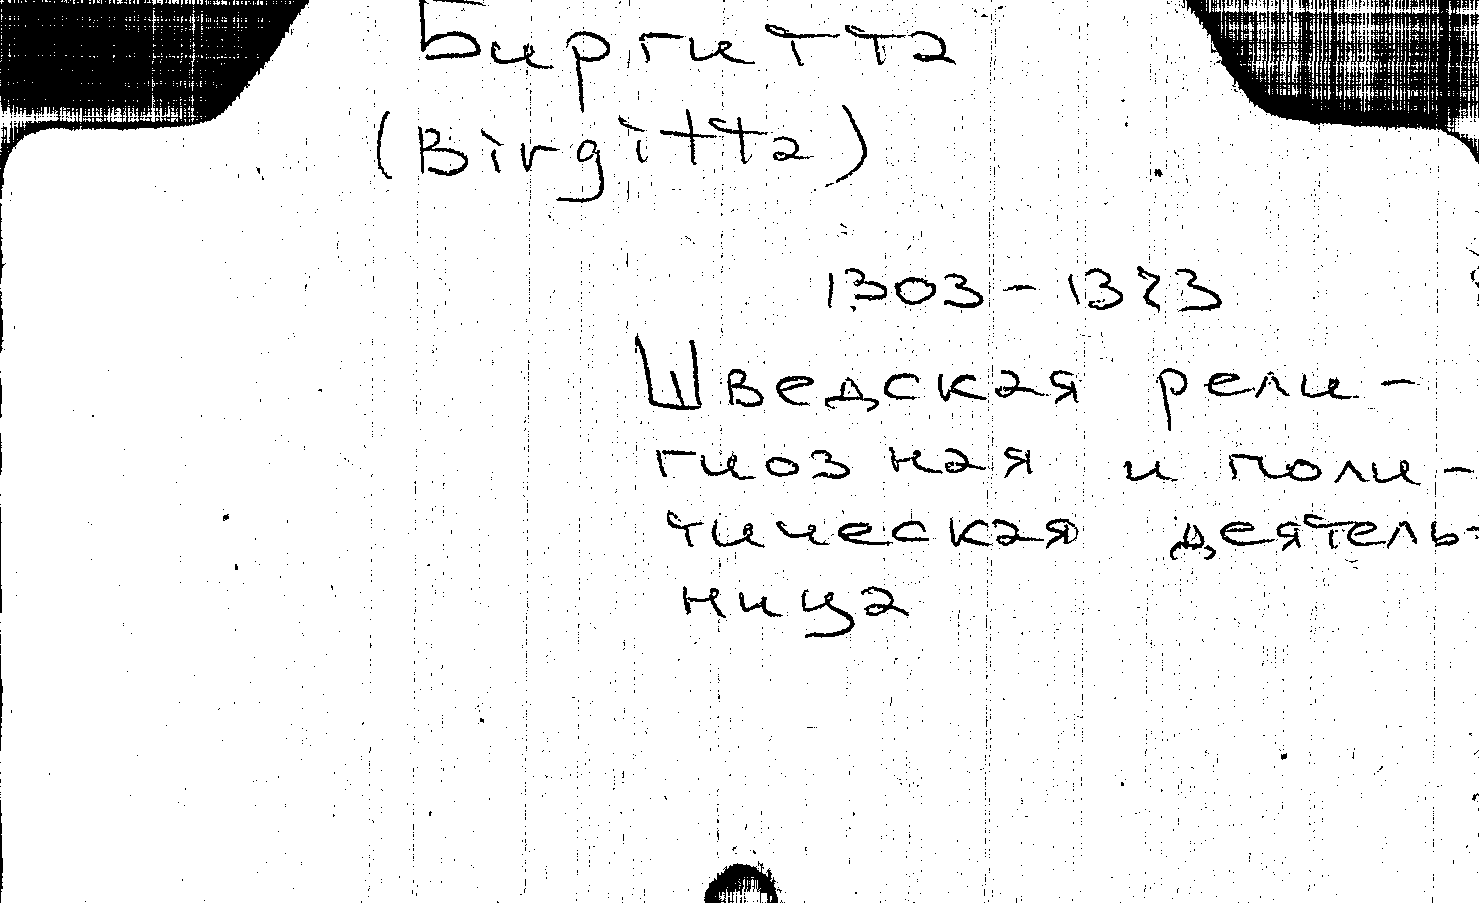 Биргитта
(Birgitta)
1303-1373
Шведская рели-
гиозная и поли-
тическая деятель-
ница